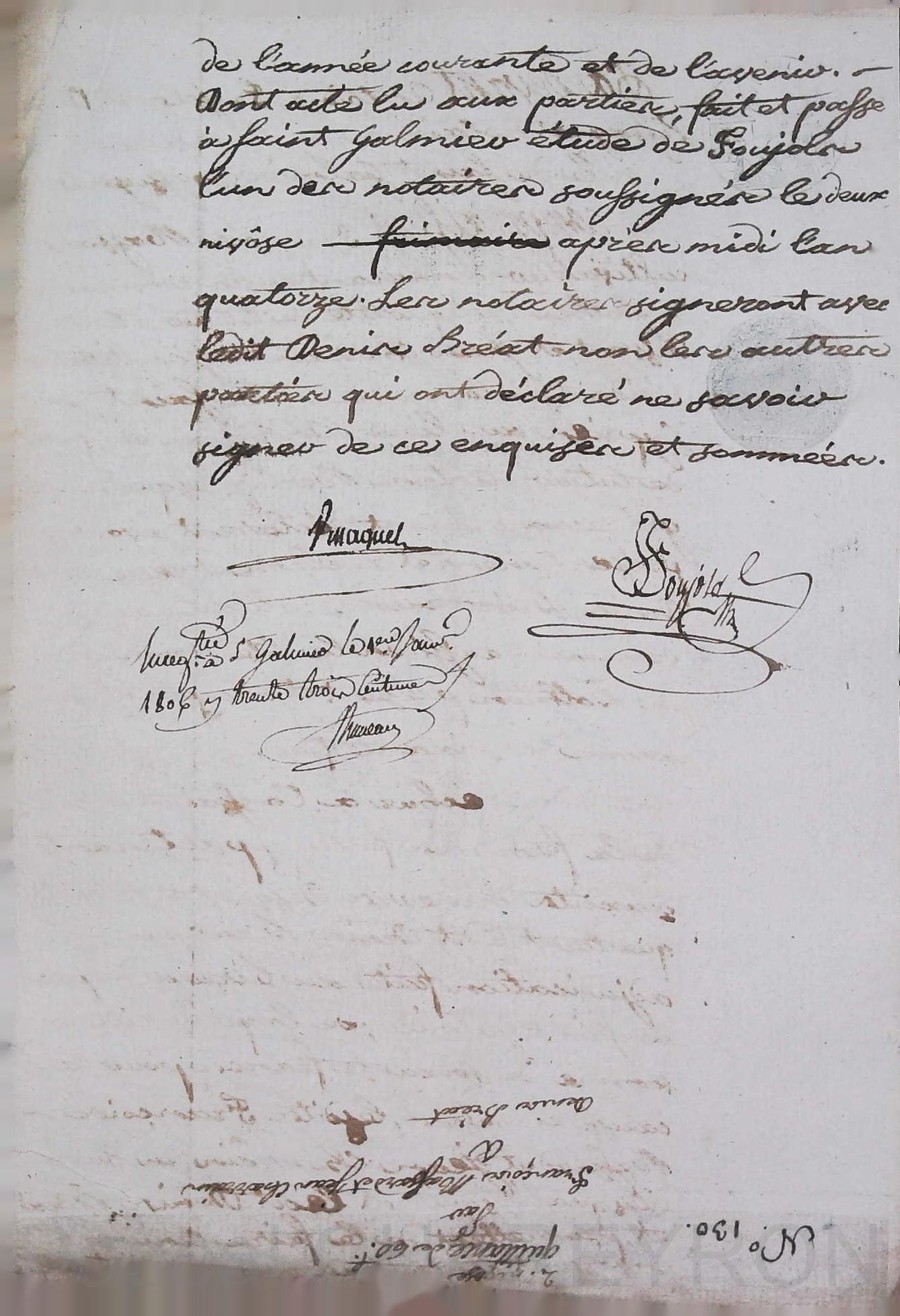 de l'année courante et de l'avenir. —
Dont acte lu aux parties, fait et passé
à saint Galmier étude de Foujols
l'un des notaires soussignés le deux
nivôse frimaire après midi l'an
quatorze. Les notaires signeront avec
ledit Denis Bréat non les autres
parties qui ont déclaré ne savoir
signer de ce enquises et sommées.
Foujols
à St Galmier le 1er Janv.
1806 trente trois Centimes
Denis Bréat
A
François et Jean
Par
quittance de 60 f.
2. nivose
N.º 130.